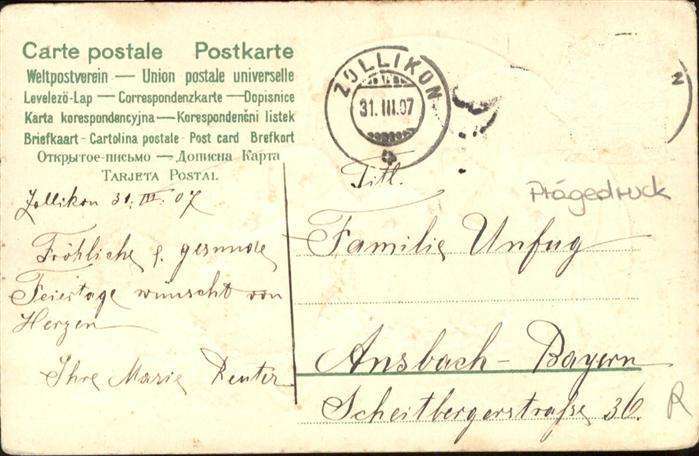 Carte postale Postkarte
Weltpostverein — Union postale universelle
Levelező-Lap — Correspondenzkarte — Dopisnice
Karta korespondencyjna — Korespondenční listek
Briefkaart - Cartolina postale - Post card Brefkort
Открытое-письмо — Дописна Карта
TARJETA POSTAL
ZOLLIKON
31.III.07
N
Zollikon 31. III. 07
Fröhliche & gesunde
Feiertage wünscht von
Herzen
Ihre Marie Reuter
Titl.
Prägedruck
Familie Unfug
Ansbach - Bayern
Scheitbergerstraße 36.
R